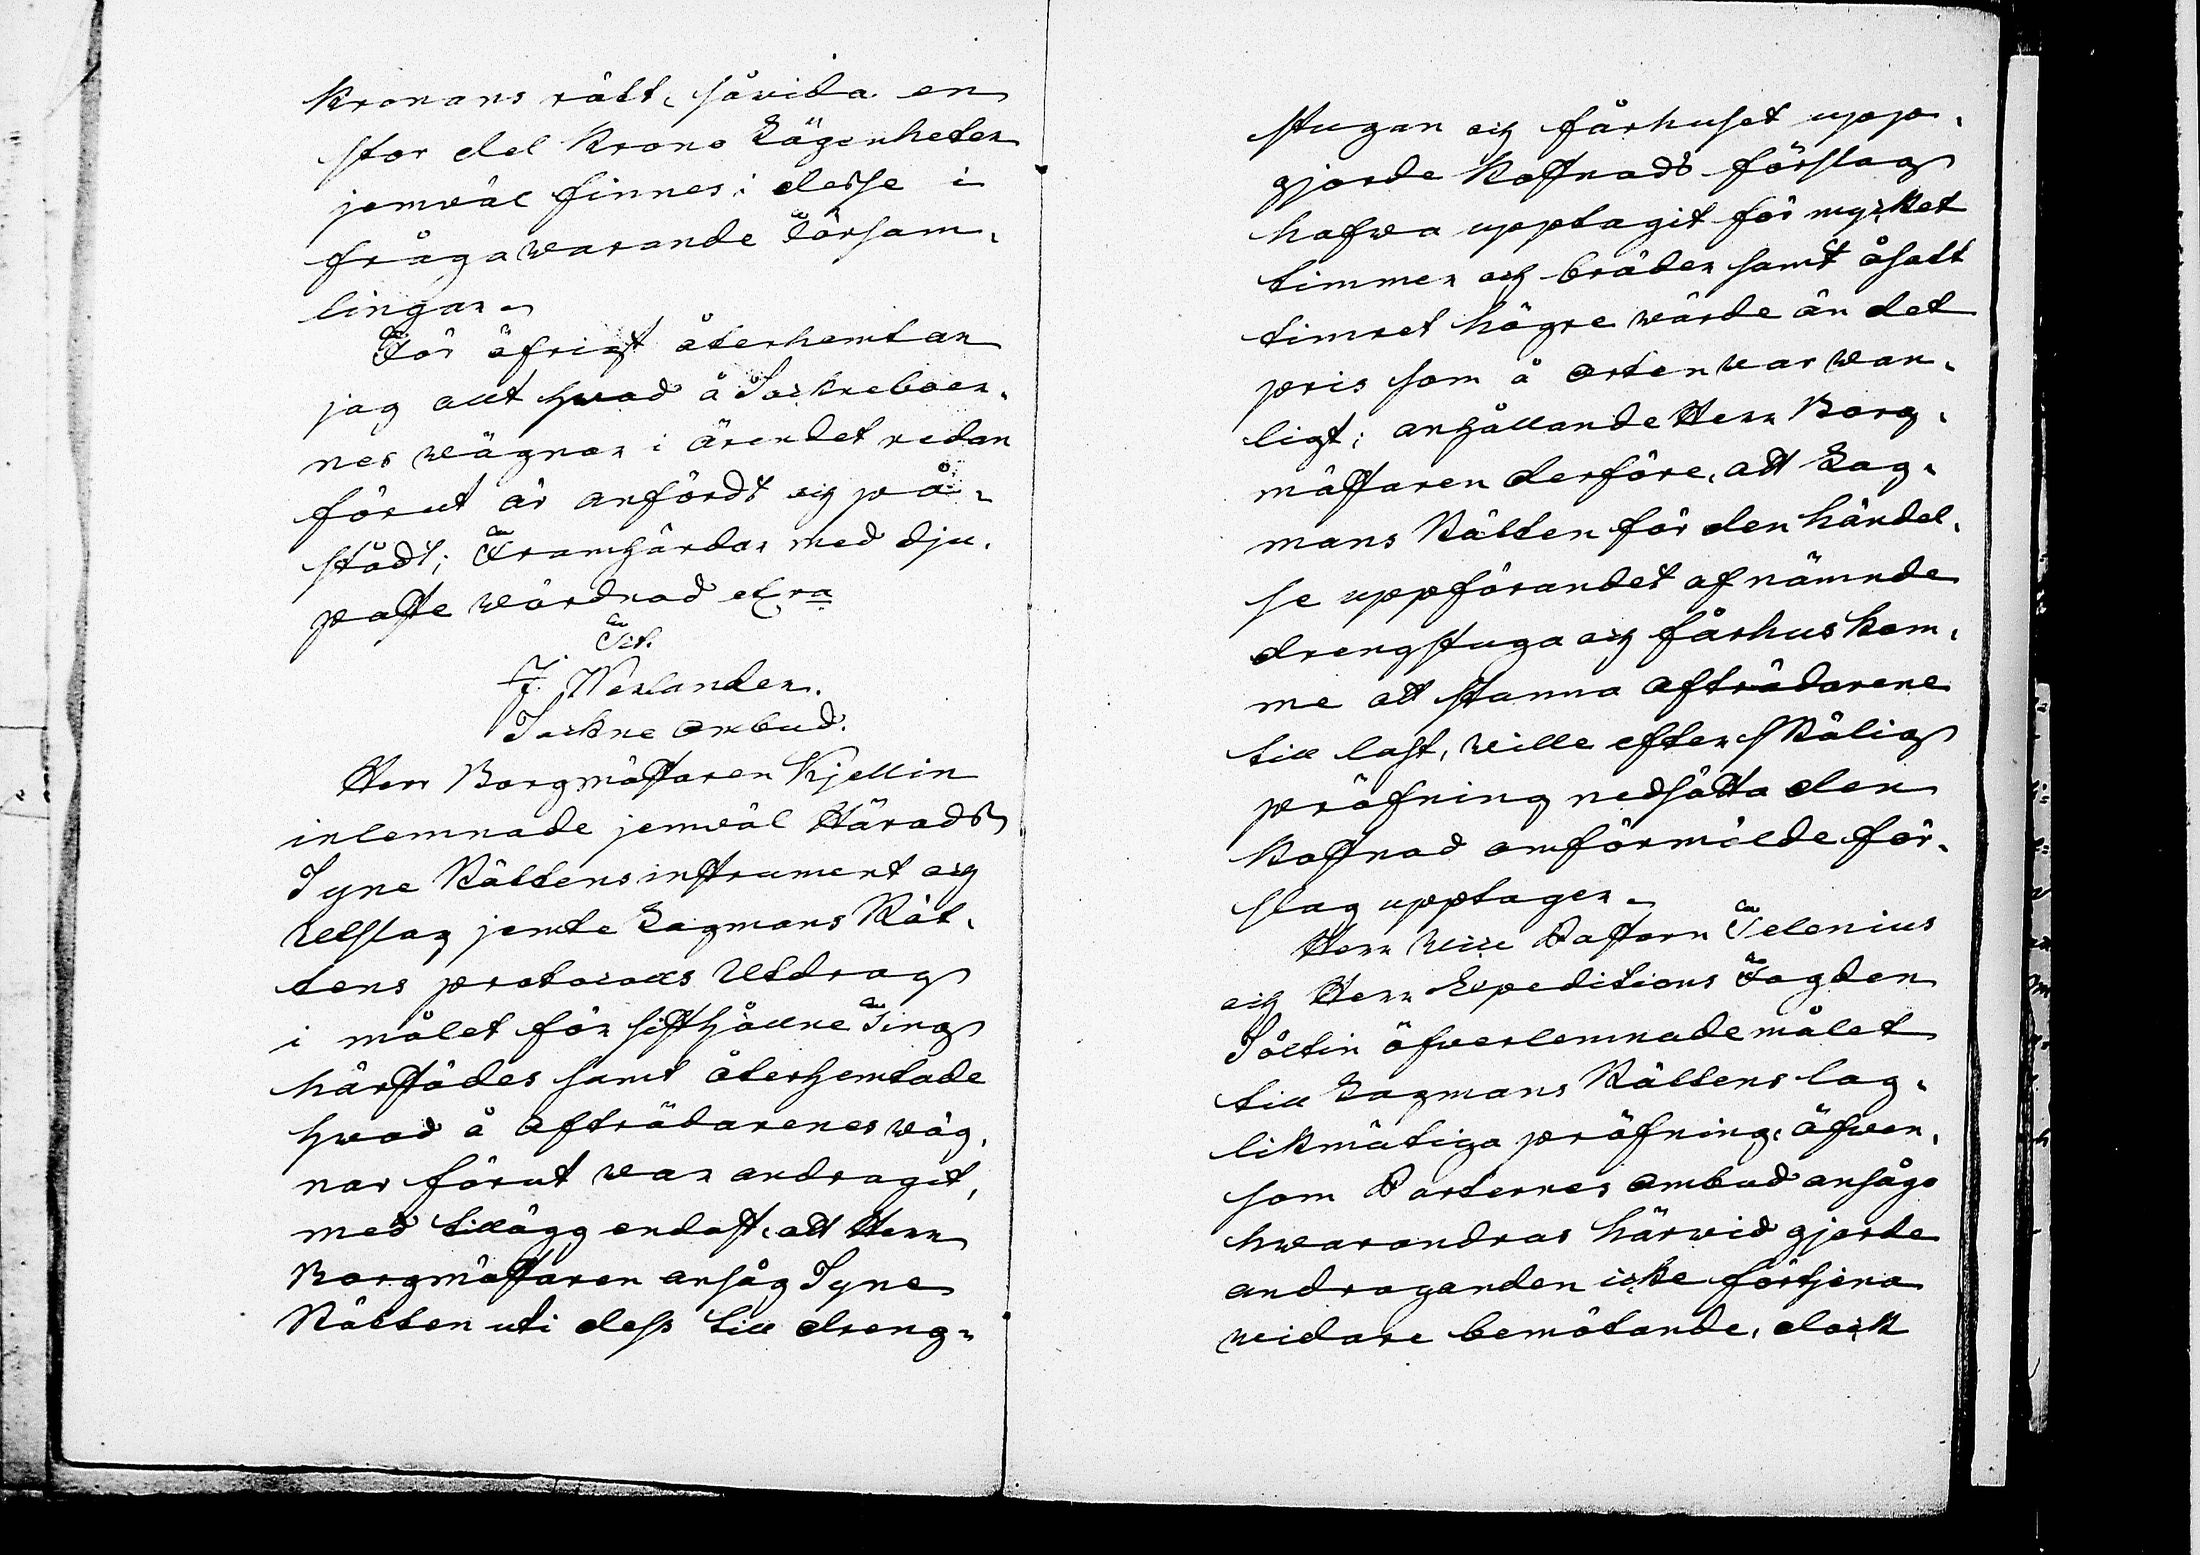 Kronans rätt, såvida en
stor del Krono Lägenheter
jemväl finnes i desse i
fråga warande Försam-
lingar.
För öfrigt återhemtar
jag allt hwad å Sockneboer-
nes wägnar i ärendet redan
förut är anfördt och på-
stådt; Framhärdar med dju-
paste wördnad etc ra
Tit.
J. Werlander.
Sockne ombud.
Herr Borgmästaren Kjellin
inlemnade jemwäl Härads
Syne Rättens instrument och
Utslag jemte Lagmans Rät-
tens protocolls Utdrag
i målet för sisthållne Ting
härstädes samt återhemtade
hwad å Afträdarenes wäg-
nar förut war andragit,
med tillägg endast, att Herr
Borgmästaren ansåg Syne
Rätten uti dess till dreng-
stugan och fårhuset upp-
gjorde Kostnads förslag
hafwa upptagit för mycket
timmer och bräder samt åsatt
timret högre wärde än det
pris som å orten war wan-
ligt; anhållande Herr Borg-
mästaren derföre, att Lag-
mans Rätten för den händel-
se uppförandet af nämnde
drengstuga och fårhus kom-
me att stanna Afträdarene
till last, wille efter skälig
pröfning nedsätta den
Kostnad omförmälde för-
slag upptager.
Herr Vice Pastorn Telenius
och Herr Expeditions Fogden
Söltin öfwerlemnade målet
till Lagmans Rättens lag-
likmätiga pröfning, äfwen-
som Parternes ombud ansågo
hwarandras härwid gjorde
andraganden icke förtjena
widare bemötande, dock